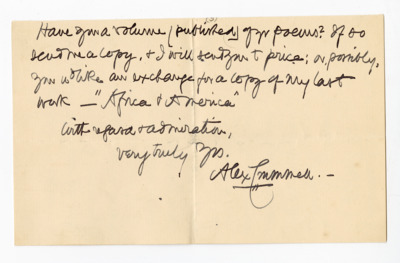 Have you a volume (published) of yr poems? If so
send me a copy, & I will send you t price; or, possibly,
you wd like an exchange for a copy of my last
work — "Africa & America"
With regard & admiration,
very truly Yrs.
Alex Crummell. —